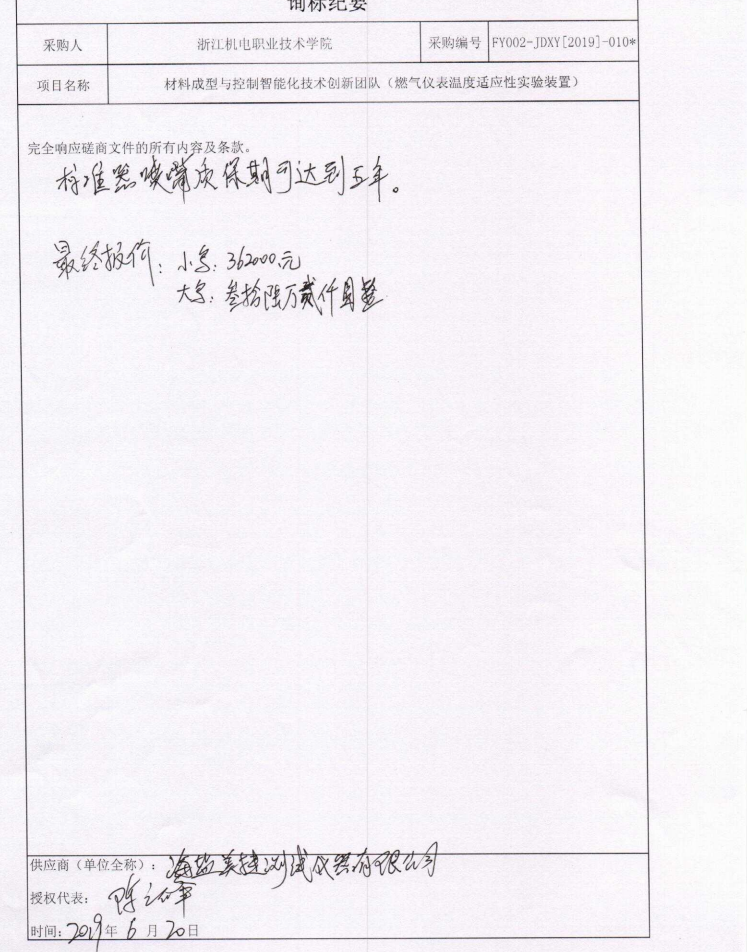 询标纪要
采购人 浙江机电职业技术学院 采购编号 FY002-JDXY[2019]-010*
项目名称 材料成型与控制智能化技术创新团队（燃气仪表温度适应性实验装置）
完全响应磋商文件的所有内容及条款。
标准器喷嘴质保期可达到五年。
最终报价：小写：362000元
大写：叁拾陆万贰仟圆整
供应商（单位全称）：海盐美捷测试仪器有限公司
授权代表：陈
时间：2019年6月20日